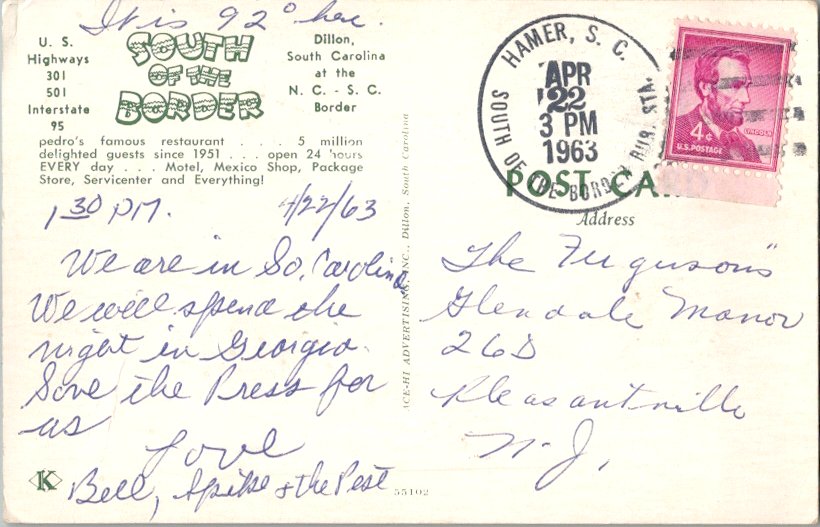 It is 92° here.
U. S.
Highways
301
501
Interstate
95
SOUTH
OF THE
BORDER
Dillon,
South Carolina
at the
N. C. - S. C.
Border
pedro's famous restaurant . . . 5 million
delighted guests since 1951 . . . open 24 hours
EVERY day . . . Motel, Mexico Shop, Package
Store, Servicenter and Everything!
1 30 PM. 4/22/63
We are in So. Carolina
We will spend the
night in Georgia.
Save the Press for
us
Love
Bell, Spike & the Pest
K
55102
ACE-HI ADVERTISING, INC., Dillon, South Carolina
HAMER, S. C.
APR
22
3 PM
1963
SOUTH OF THE BORDER RUR. STA.
4¢
LINCOLN
U.S. POSTAGE
POST CARD
Address
The Ferguson's
Glendale Manor
26D
Pleasantville
N. J.